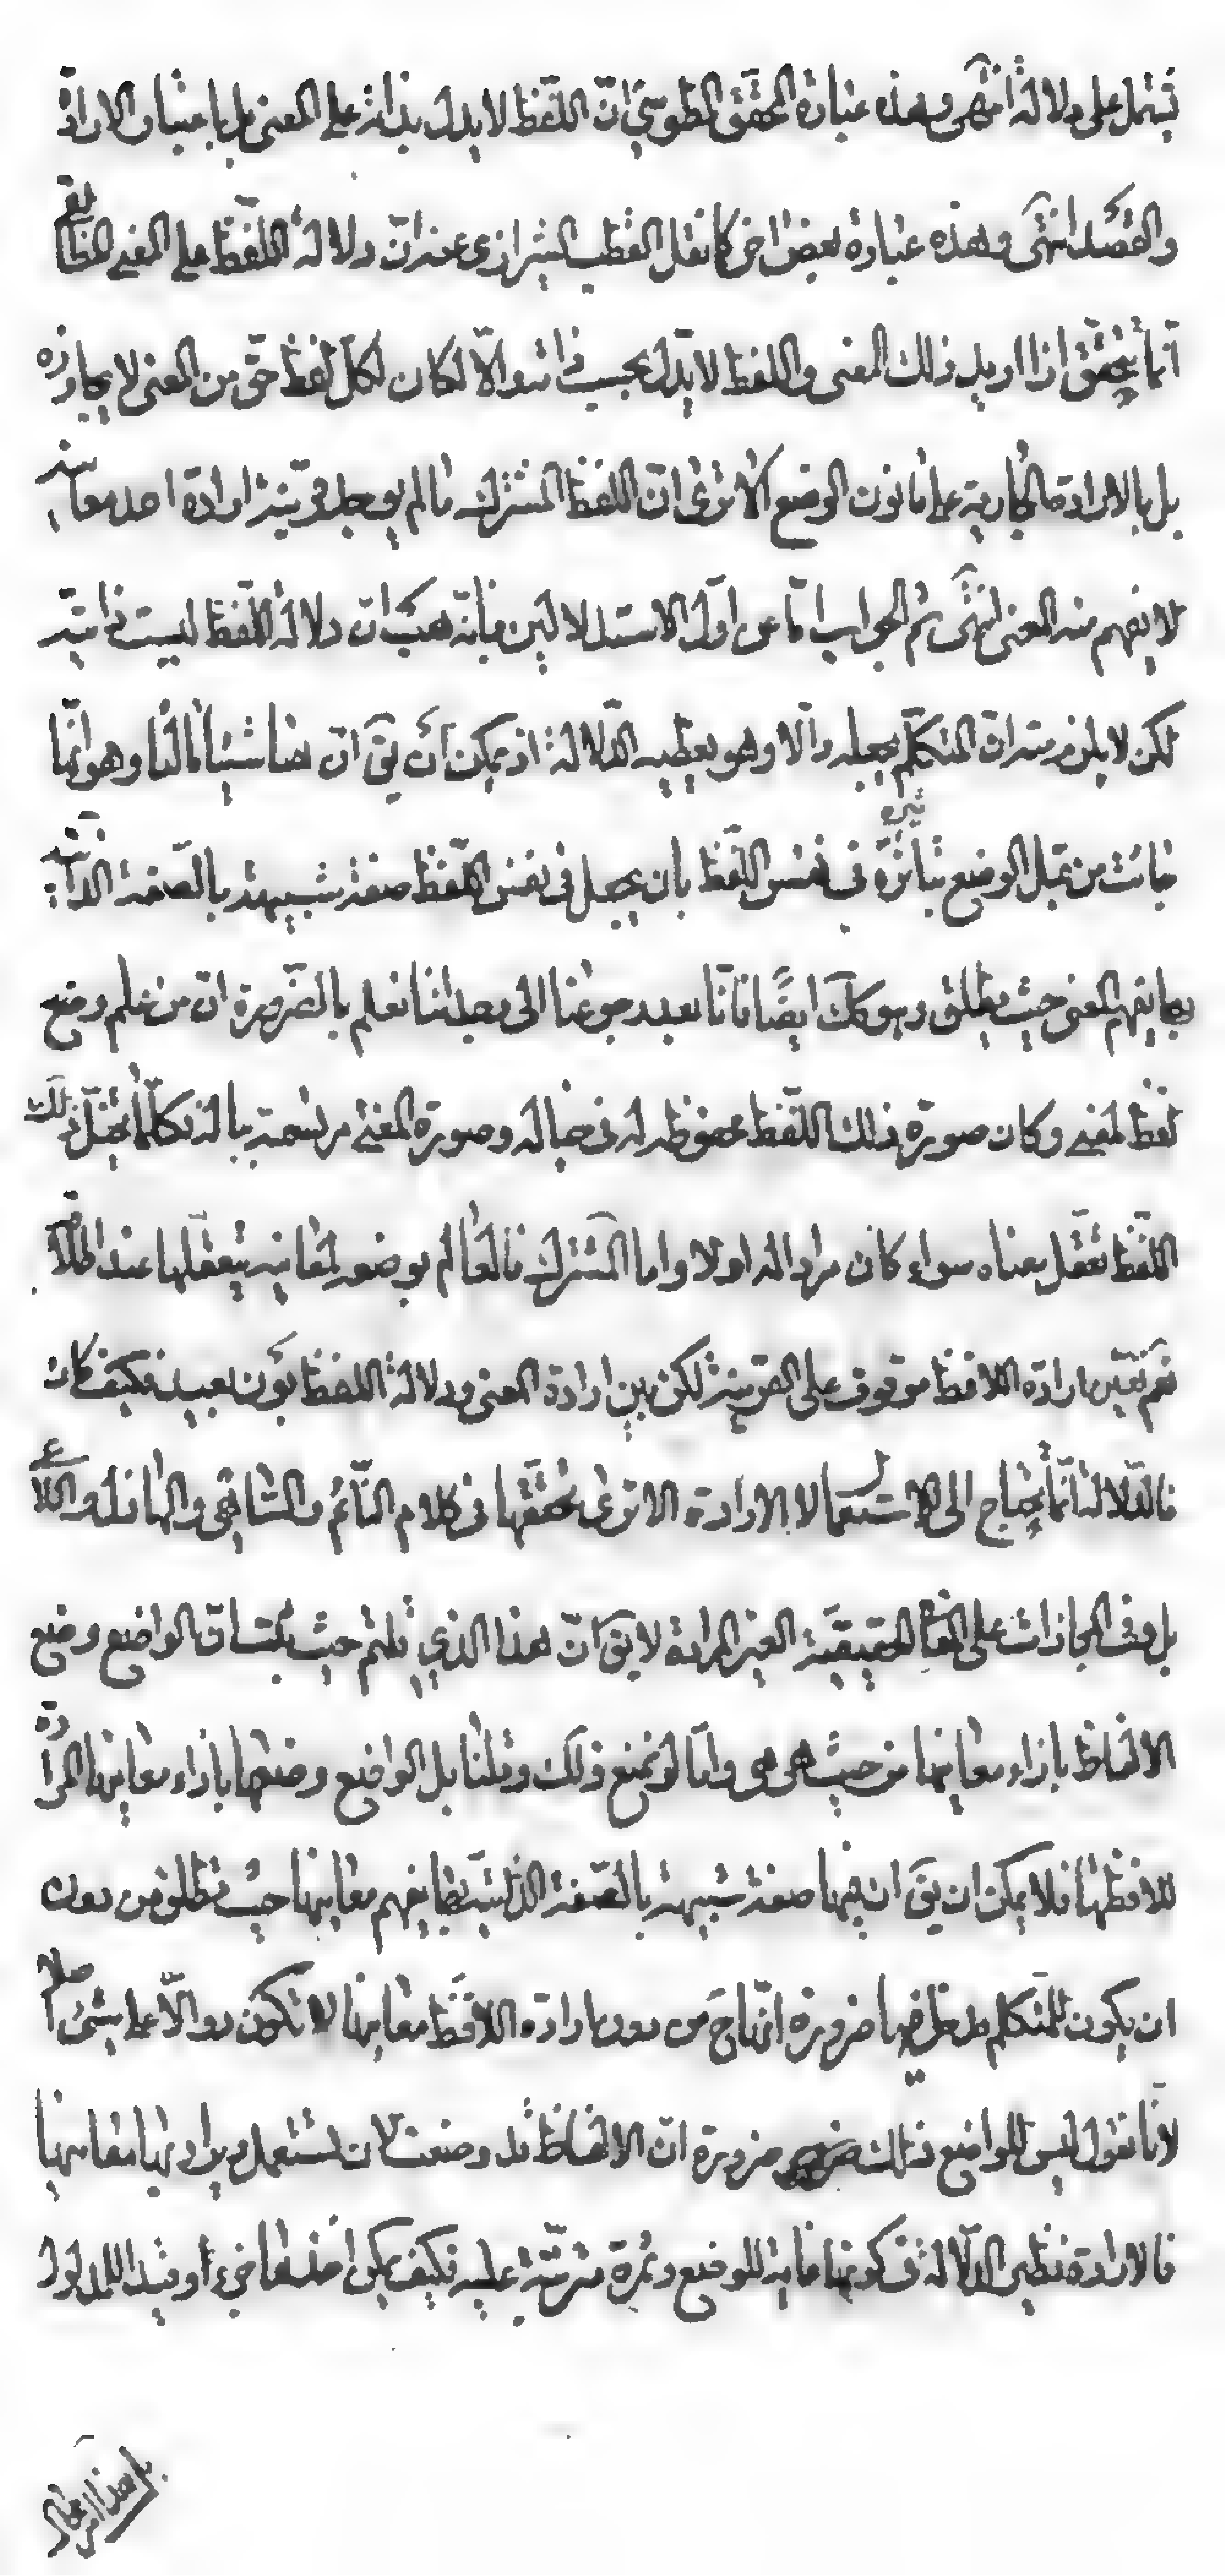 تشتمل على دلالة انتهى وهذه عبارة المحقق الطوسي انّ اللّفظ لا يدل بذاته على المعنى بل باعتبار الارادة
والقصد انتهى وهذه عبارة بعض اخر كما نقل القطب الشيرازي عنه انّ دلالة اللّفظ على المعنى المطابقي
انّما يتحقّق اذا اريد ذلك المعنى واللفظ لا يدّل بحسب ذاته والاّ لكان لكل لفظ حقّ من المعنى لا يجاوزه
بل بالارادة الجارية على قانون الوضع الا ترى انّ اللفظ المشترك ما لم يوجد قرينة ارادة احد معانيه
لا يفهم منه المعنى انتهى ثم الجواب امّا عن اوّل الاستدلالين فبأنّه هب انّ دلالة اللّفظ ليست ذاتيّة
لكن لا يلزم منه انّ المتكلّم يجعله دالّا وهو يعطيه الدّلالة اذ يمكن أن يقَ انّ هنا شيئا ثالثا وهو انّها
جائت من قبل الوضع بتأثيره في نفس اللّفظ بان يجعل في نفس اللّفظ صفة شبيهة بالصّفة الذّاتيّة
بها يفهم المعنى حيث يطلق وهو ككَ ايضًا فانّا بعد رجوعنا الى وجداننا نعلم بالضّرورة انّ من علم وضع
لفظ لمعنى وكان صورة ذلك اللّفظ محفوظة له في خياله وصورة المعنى مرتسمة بباله فكلّما يتخيّل ذلك
اللّفظ تعقّل معناه سواء كان مرادا له اولا واما المشترك فالعالم بوضعه لمعانيه يتعقلها عند اطلاقه
نعم تعيّن ارادة اللافظ موقوف على القرينة لكن بين ارادة المعنى ودلالة اللفظ بون بعيد فكيف كان
فالدّلالة انّما يحتاج الى الاستعمال لا الارادة الا ترى تحققها في كلام النّائم والسّاهي والهازل واللاعى
بل وفي المجازات على المعاني الحقيقيّة الغير المرادة لا يقَ انّ هذا الذي قلتم حيث يكتساق الواضع وضع
الالفاظ بازاء معانيها من حيث هي هي وامّا لو نمنع ذلك وقلنا بل الواضع وضعها بازاء معانيها المرادة
للافظها فلا يمكن ان يقَ ان فيها صفة شبيهة بالصّفة الذّاتيّة بها يفهم معانيها حيث تطلق من دون
ان يكون للمتكلم مدخل فيها ضرورة انّها حَ من دون ارادة اللافظ معانيها لا تكون دوالّا على شيء اصلا
لانّا نقول ليس للواضع ذلك ضرورة انّ الالفاظ قد وضعت لان تستعمل ويراد بها معانيها
فالارادة نظير الدّلالة في كونها غاية للوضع وثمرة مترتّبة عليه فكيف يمكن اخذها جزءا وقيدا للمدلول
بل هذا امر محال